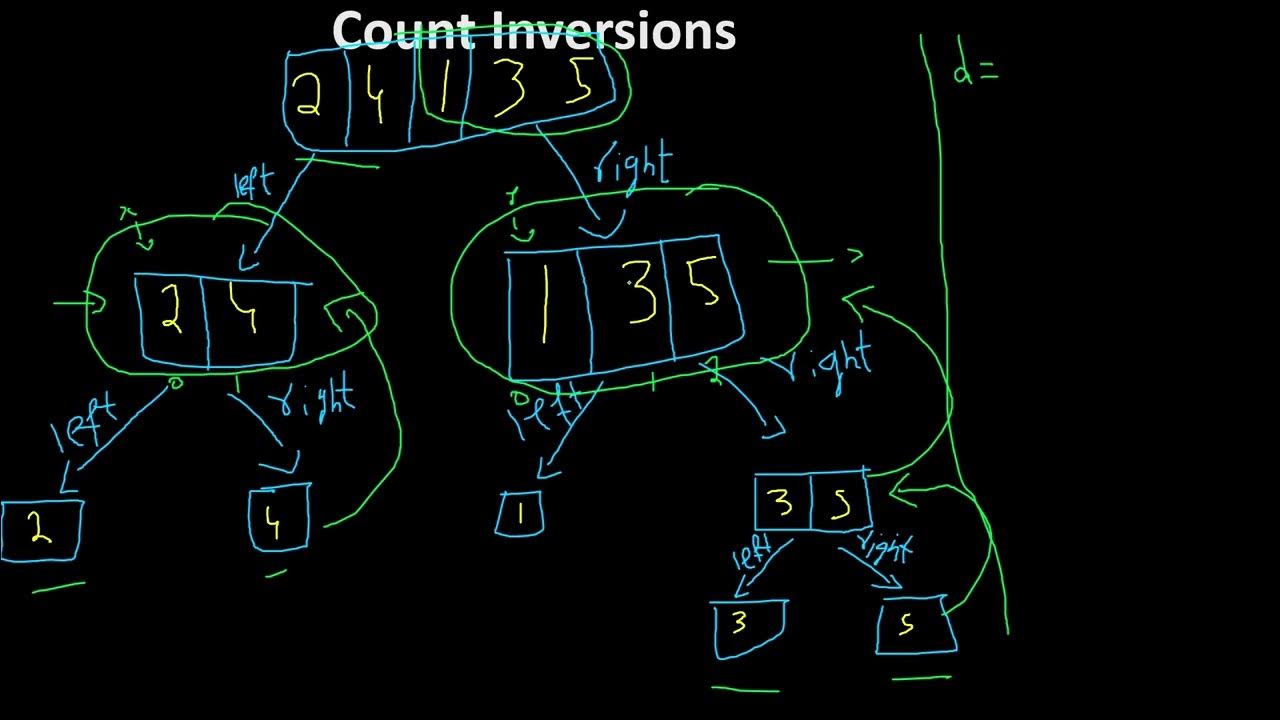 Count Inversions
d =
2 4 1 3 5
left right
2 4 1 3 5
0 1 0 1 2
left right left right
2 4 1 3 5
left right
3 5